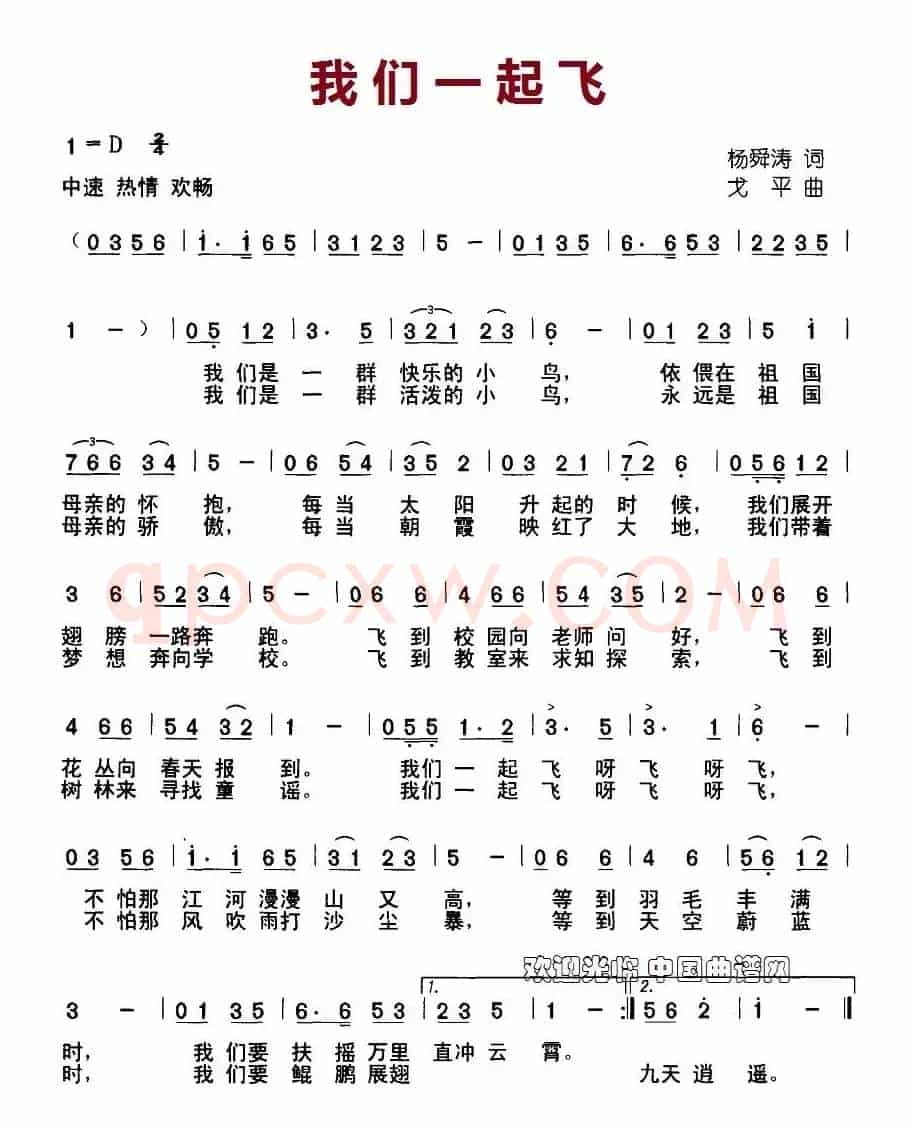 我们一起飞
1=D 2/4
杨舜涛 词
中速 热情 欢畅
戈 平 曲
( 0 3 5 6 | 1· 1 6 5 | 3 1 2 3 | 5 - | 0 1 3 5 | 6· 6 5 3 | 2 2 3 5 |
1 - ) | 0 5 1 2 | 3· 5 | 3 2 1 2 3 | 6 - | 0 1 2 3 | 5 1 |
我 们是 一 群 快乐的 小 鸟, 依 偎在 祖 国
我 们是 一 群 活泼的 小 鸟, 永 远是 祖 国
7 6 6 3 4 | 5 - | 0 6 5 4 | 3 5 2 | 0 3 2 1 | 7 2 6 | 0 5 6 1 2 |
母亲的 怀 抱, 每 当 太 阳 升 起的 时 候, 我们展开
母亲的 骄 傲, 每 当 朝 霞 映 红了 大 地, 我们带着
qpcxw.COM
3 6 | 5 2 3 4 | 5 - | 0 6 6 | 4 6 6 | 5 4 3 5 | 2 - | 0 6 6 |
翅 膀 一路奔 跑。 飞 到 校 园向 老师 问 好, 飞 到
梦 想 奔向学 校。 飞 到 教 室来 求知 探 索, 飞 到
4 6 6 | 5 4 3 2 | 1 - | 0 5 5 1· 2 | 3· 5 | 3· 1 | 6 - |
花 丛向 春天 报 到。 我们 一 起 飞 呀 飞 呀 飞,
树 林来 寻找 童 谣。 我们 一 起 飞 呀 飞 呀 飞,
0 3 5 6 | 1· 1 6 5 | 3 1 2 3 | 5 - | 0 6 6 | 4 6 | 5 6 1 2 |
不 怕那 江 河 漫漫 山 又 高, 等 到 羽 毛 丰 满
不 怕那 风 吹 雨打 沙 尘 暴, 等 到 天 空 蔚 蓝
欢迎光临 中国曲谱网
1. 2.
3 - | 0 1 3 5 | 6· 6 5 3 | 2 3 5 | 1 - :‖ 5 6 2 | 1 - ‖
时, 我 们要 扶 摇 万里 直冲 云 霄。
时, 我 们要 鲲 鹏 展翅 九天 逍 遥。